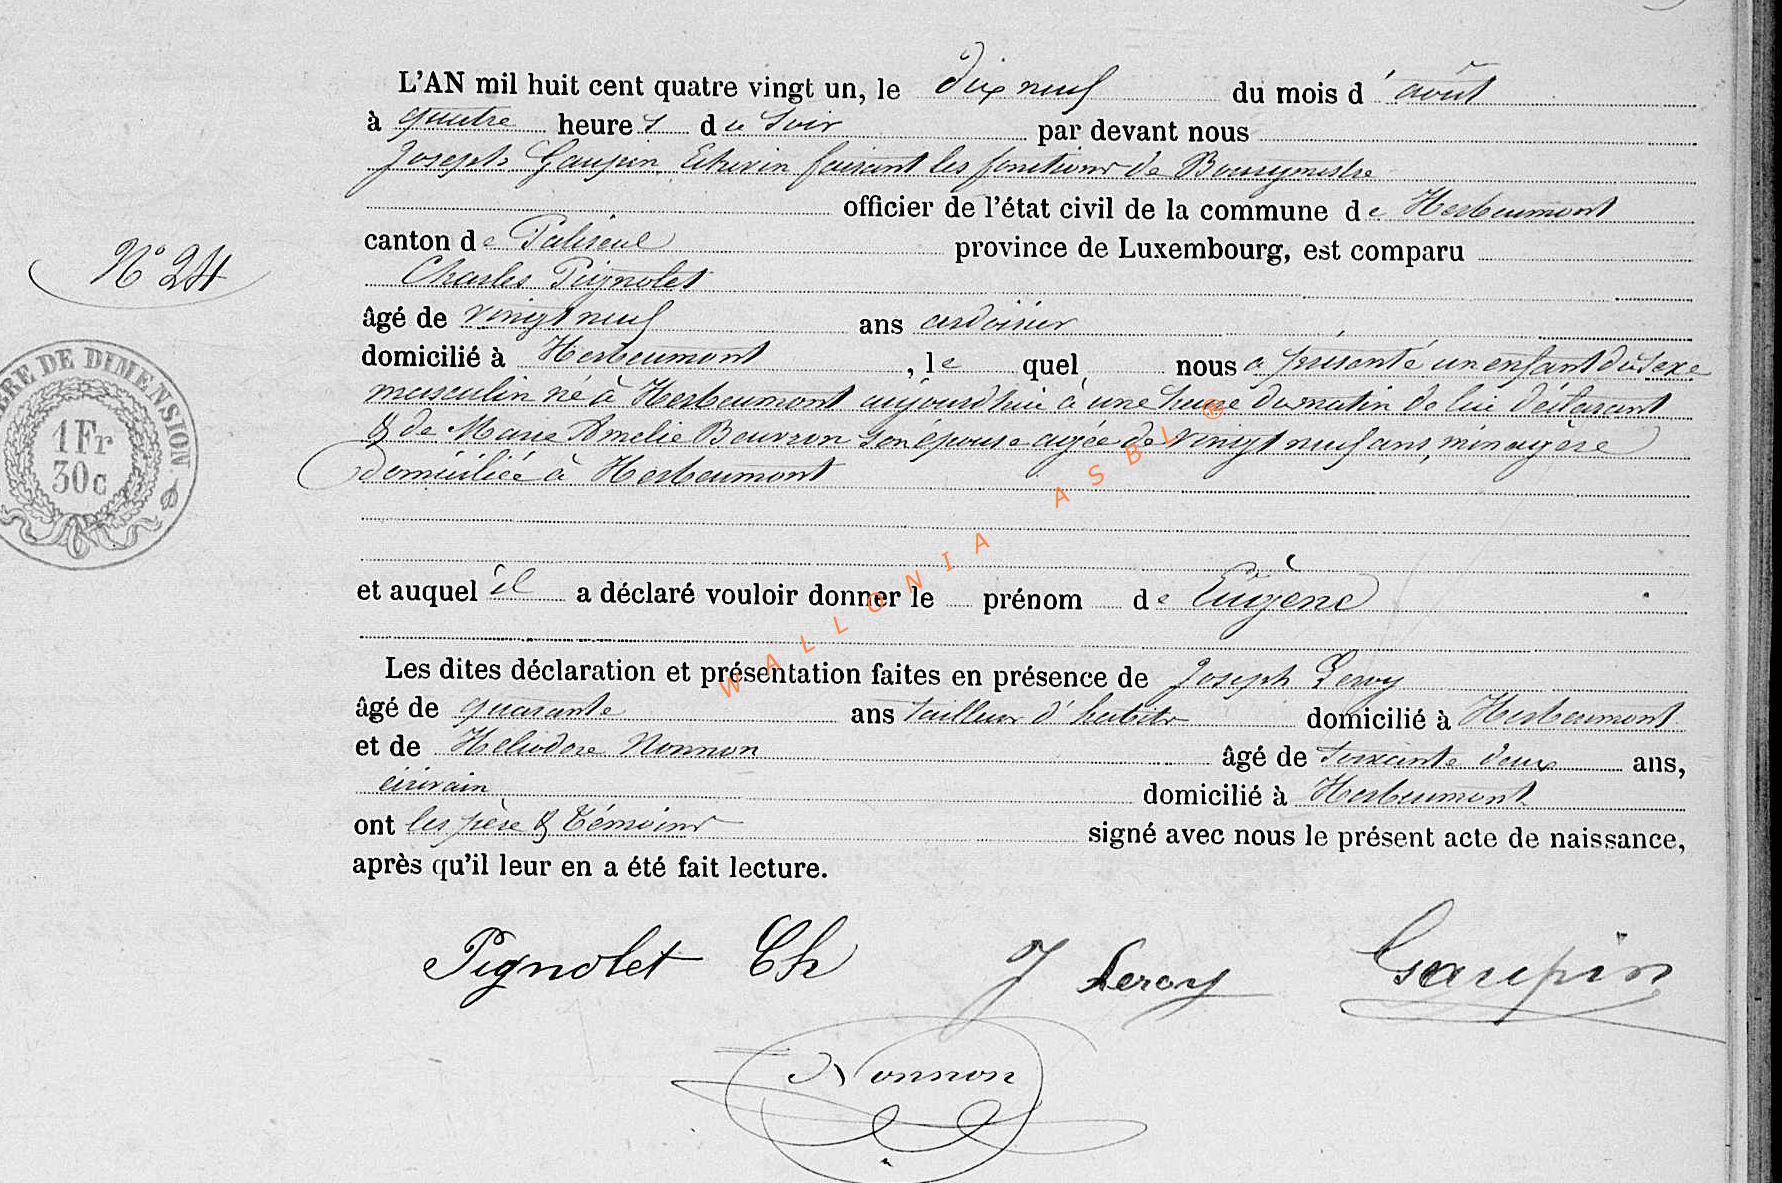 L'AN mil huit cent quatre vingt un, le dix neuf du mois d'août
à quatre heures du soir par devant nous
Joseph Gaupin, Echevin faisant les fonctions de Bourgmestre
officier de l'état civil de la commune de Herbeumont
canton de Paliseul province de Luxembourg, est comparu
Charles Pignolet
N° 24
âgé de vingt neuf ans ardoisier
domicilié à Herbeumont, lequel nous a présenté un enfant du sexe
masculin né à Herbeumont aujourd'hui à une heure du matin de lui déclarant
& de Marie Amelie Beuvron son épouse agée de vingt neuf ans, ménagère
domiciliée à Herbeumont
TIMBRE DE DIMENSION
1 Fr
30c
et auquel il a déclaré vouloir donner le prénom de Eugène
Les dites déclaration et présentation faites en présence de Joseph Leroy
âgé de quarante ans tailleur d'habits domicilié à Herbeumont
et de Heliodore Nonnon âgé de soixante deux ans,
écrivain domicilié à Herbeumont
ont les père & témoins signé avec nous le présent acte de naissance,
après qu'il leur en a été fait lecture.
Pignolet Ch J Leroy Gaupin
Nonnon
WALLONIA ASBL ®